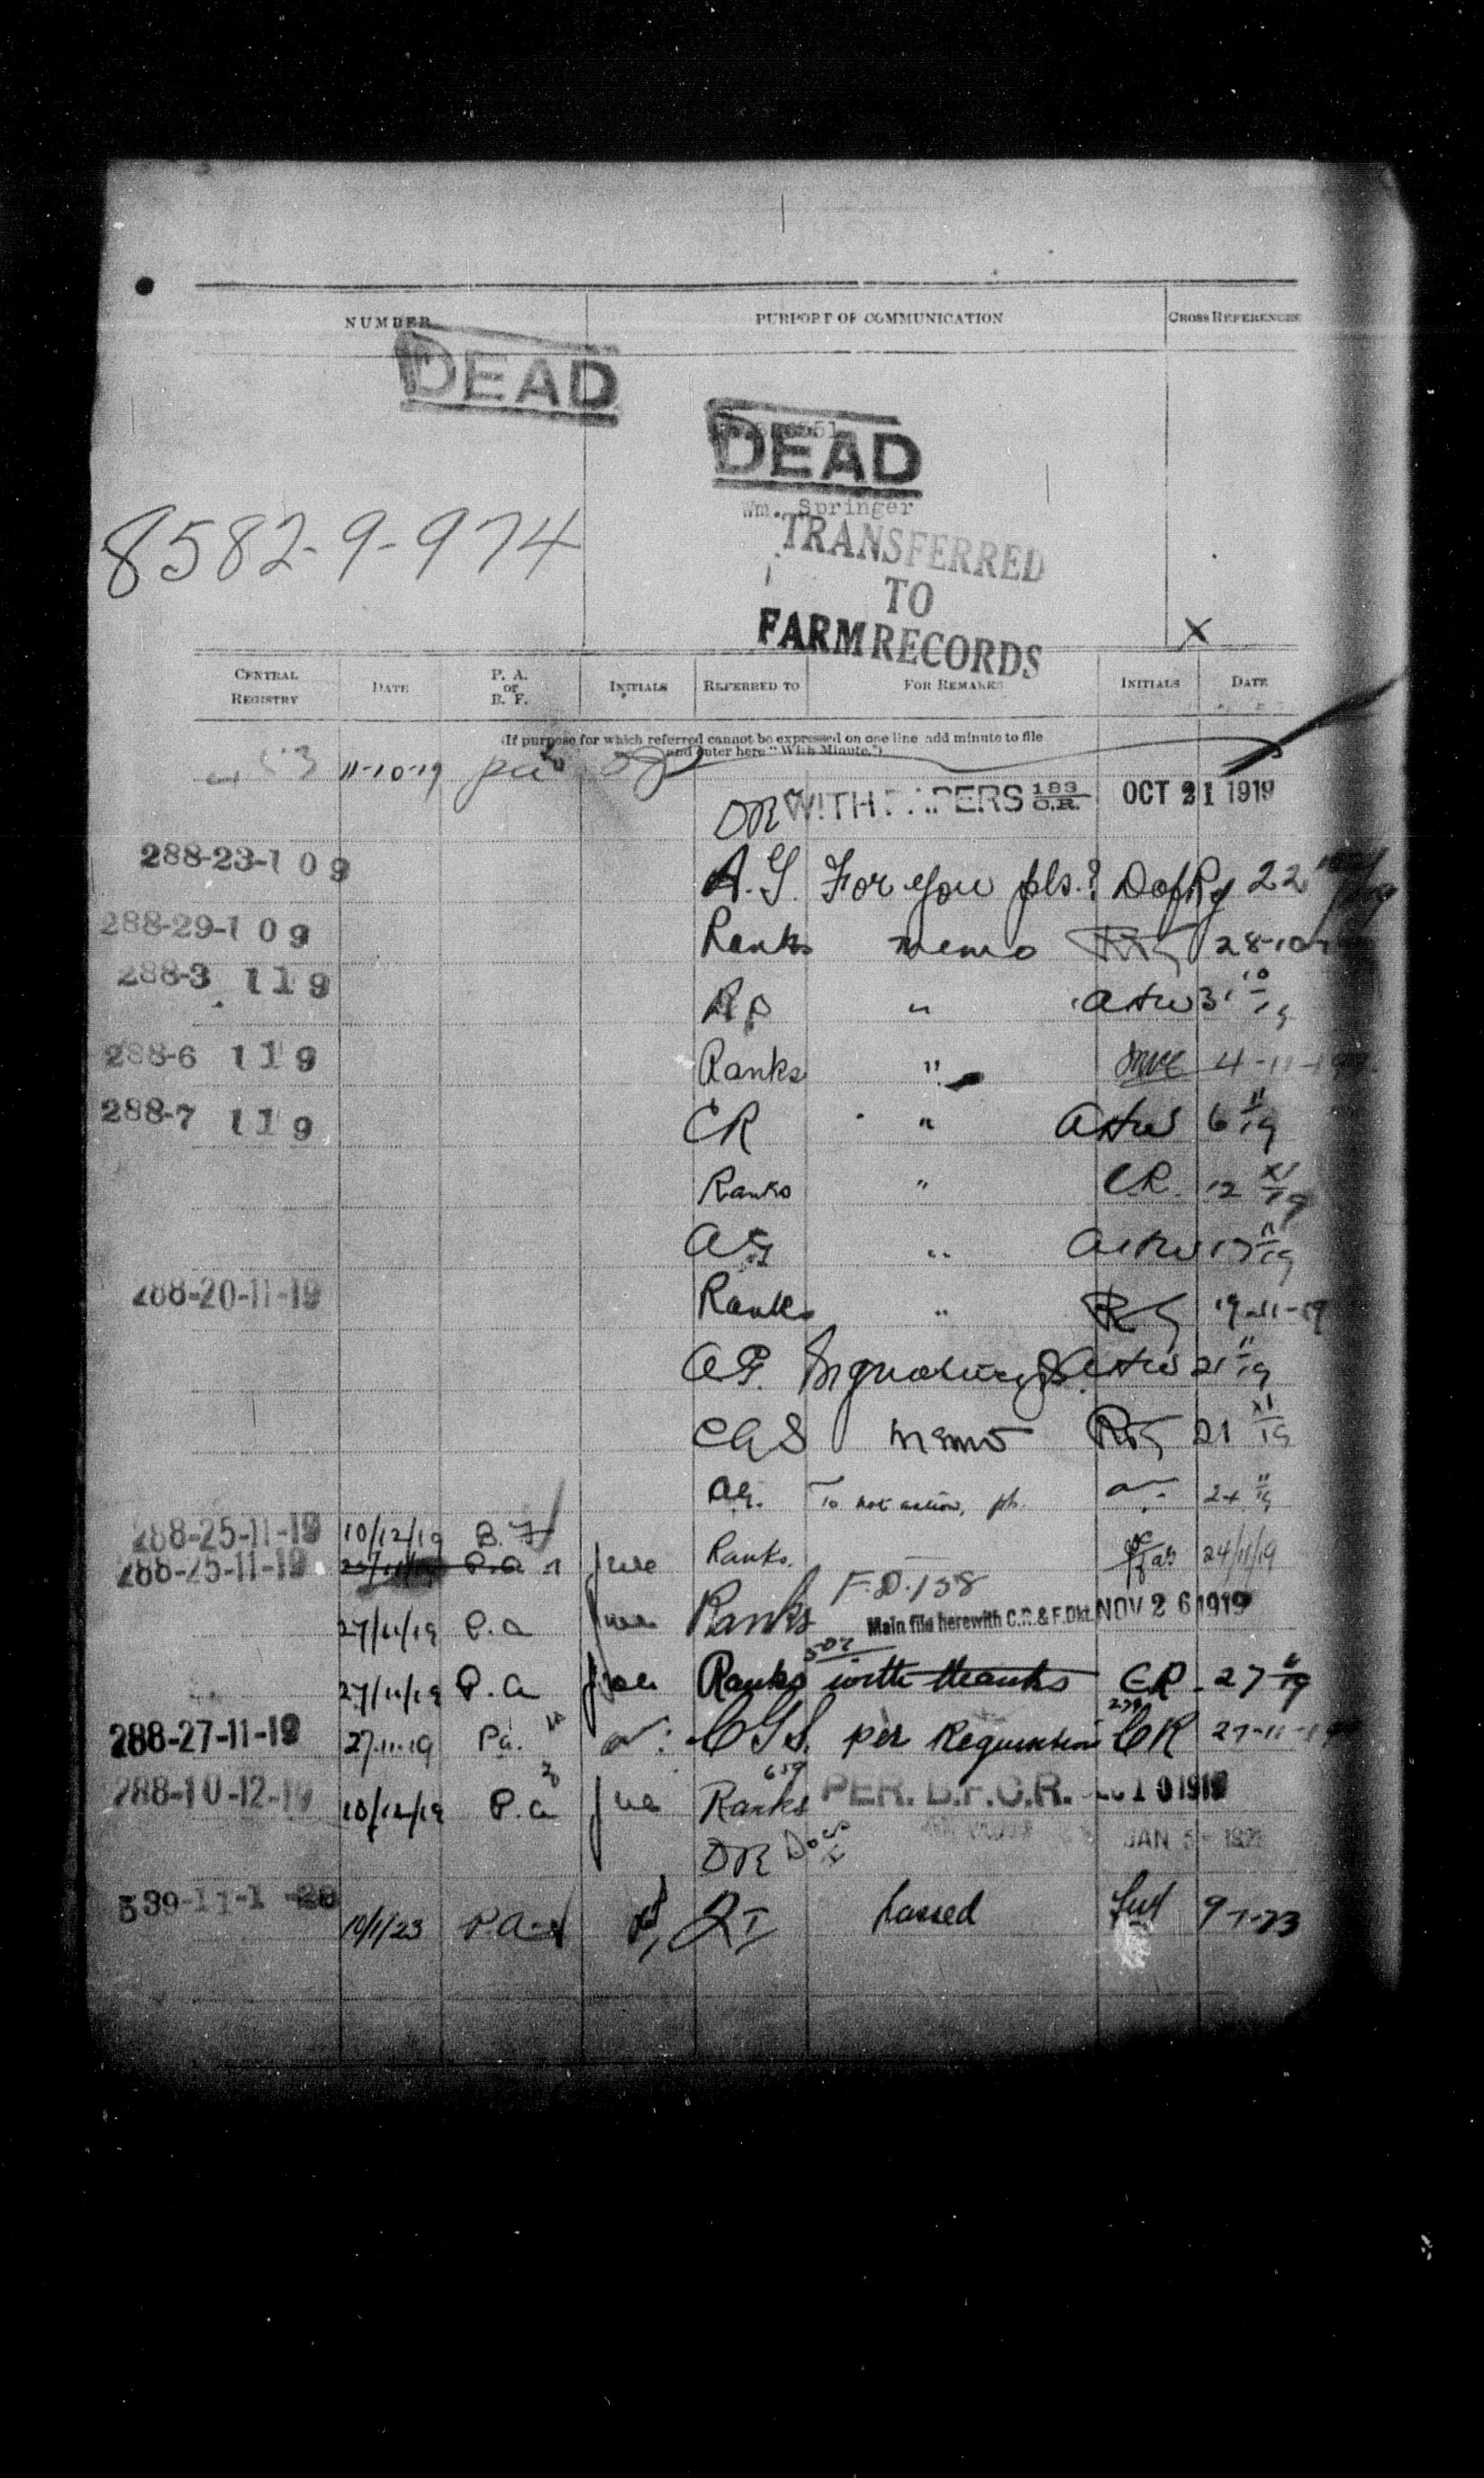 NUMBER PURPORT OF COMMUNICATION CROSS REFERENCES
DEAD
DEAD
Wm. Springer
8582-9-974
TRANSFERRED
TO
FARM RECORDS
X
CENTRAL REGISTRY DATE P. A. or B. F. INITIALS REFERRED TO FOR REMARKS INITIALS DATE
(If purpose for which referred cannot be expressed on one line add minute to file
and enter here "With Minute.")
11-10-19 pa
DR WITH PAPERS 183 O.R. OCT 21 1919
288-23-1 0 9 A.G. For you pls.? 22
288-29-1 0 9 Ranks memo 28-10
288-3 1 1 9 "
288-6 1 1 9 Ranks " 4-11-19
288-7 1 1 9 CR " 6 11/19
Ranks " CR. 12 XI/19
AG "
288-20-11-19 Ranks " 19-11-19
21 11/19
CGS memo 21 XI/19
AG. To note action, pls. 24 11/19
288-25-11-19 10/12/19 B.F.
288-25-11-19 P.a Jwe Ranks. 24/11/19
F.D.158
27/11/19 P.a Jwe Ranks Main file herewith C.R. & F.Dkt. NOV 26 1919
27/11/19 P.a Jwe Ranks with thanks CR. 27 11/19
288-27-11-19 27.11.19 Pa. CGS. per Requisition CR 27-11-19
288-10-12-19 10/12/19 P.a Jwe Ranks 659 PER. B.F.C.R. 10 1919
DR Docs JAN 5
539-11-1 10/1/23 P.A. passed 9-1-23